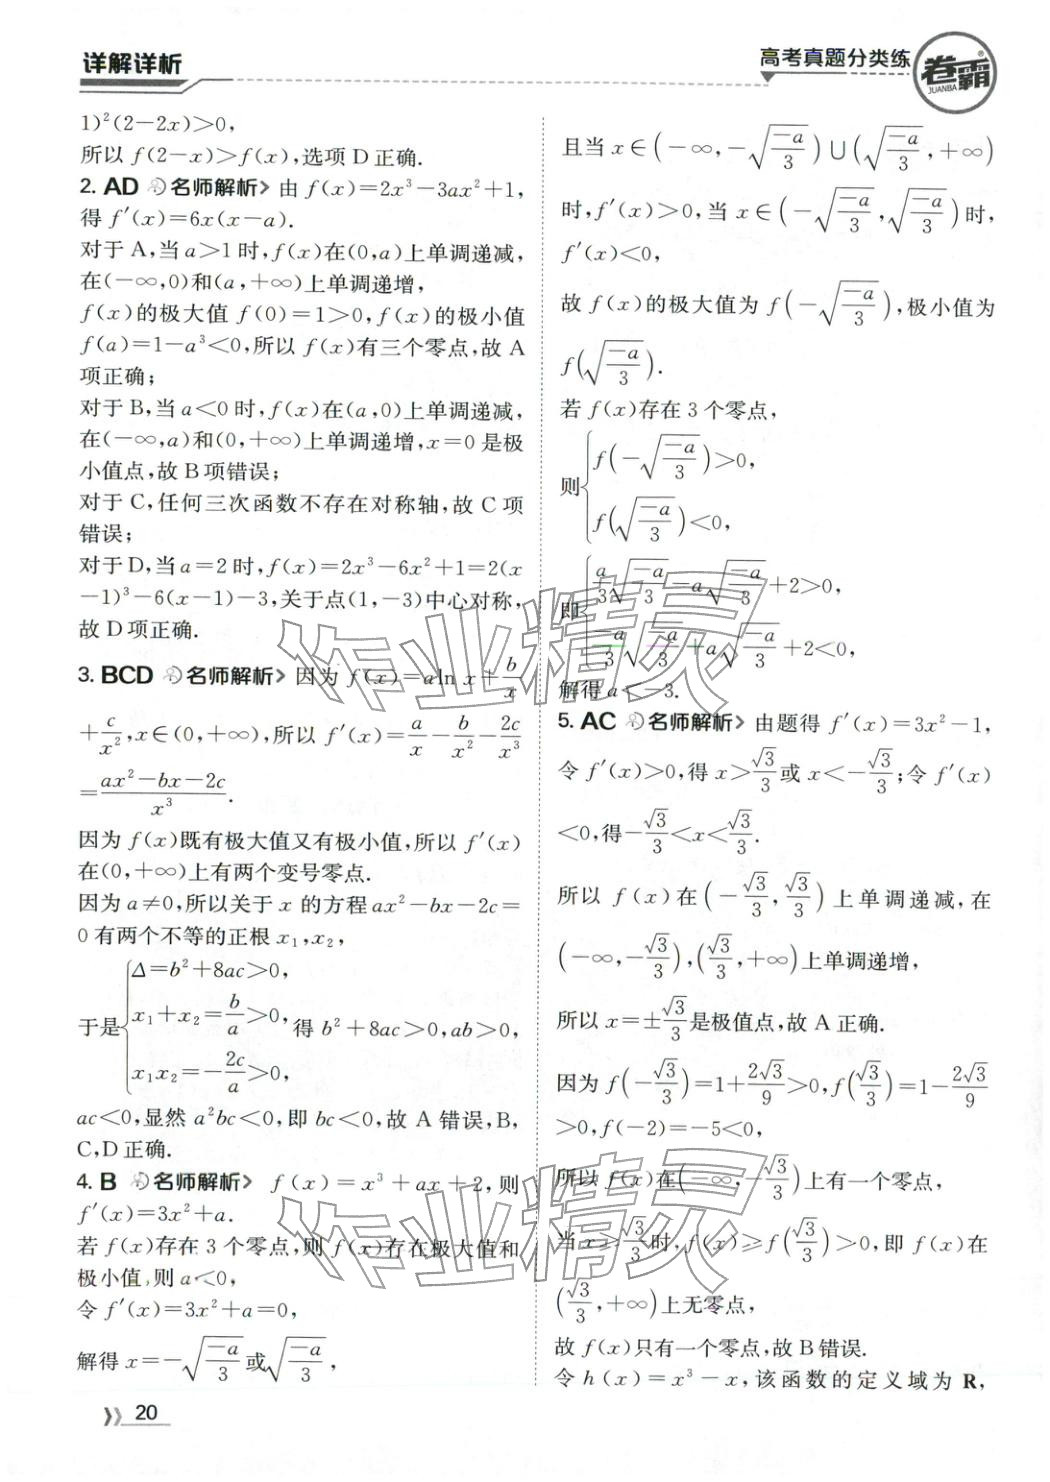 详解详析
高考真题分类练
卷霸
JUANBA
1)²(2-2x)>0,
所以 f(2-x)>f(x),选项D正确.
2. AD 名师解析> 由 f(x)=2x³-3ax²+1,
得 f′(x)=6x(x-a).
对于 A,当 a>1 时,f(x)在(0,a)上单调递减,
在(-∞,0)和(a,+∞)上单调递增,
f(x)的极大值 f(0)=1>0,f(x)的极小值
f(a)=1-a³<0,所以 f(x)有三个零点,故 A
项正确;
对于 B,当 a<0 时,f(x)在(a,0)上单调递减,
在(-∞,a)和(0,+∞)上单调递增,x=0 是极
小值点,故 B项错误;
对于 C,任何三次函数不存在对称轴,故 C 项
错误;
对于D,当a=2时,f(x)=2x³-6x²+1=2(x
-1)³-6(x-1)-3,关于点(1,-3)中心对称,
故 D项正确.
3. BCD 名师解析> 因为 f(x)=aln x+b/x
+c/x²,x∈(0,+∞),所以 f′(x)=a/x-b/x²-2c/x³
=(ax²-bx-2c)/x³.
因为 f(x)既有极大值又有极小值,所以 f′(x)
在(0,+∞)上有两个变号零点.
因为 a≠0,所以关于 x 的方程ax²-bx-2c=
0有两个不等的正根 x₁,x₂,
于是{Δ=b²+8ac>0,
x₁+x₂=b/a>0,
x₁x₂=-2c/a>0,
得 b²+8ac>0,ab>0,
ac<0,显然 a²bc<0,即 bc<0,故 A 错误,B,
C,D正确.
4. B 名师解析> f(x)=x³+ax+2,则
f′(x)=3x²+a.
若 f(x)存在 3 个零点,则 f(x)存在极大值和
极小值,则 a<0,
令 f′(x)=3x²+a=0,
解得 x=-√(-a/3)或√(-a/3),
20
且当 x∈(-∞,-√(-a/3))∪(√(-a/3),+∞)
时,f′(x)>0,当 x∈(-√(-a/3),√(-a/3))时,
f′(x)<0,
故 f(x)的极大值为 f(-√(-a/3)),极小值为
f(√(-a/3)).
若 f(x)存在3个零点,
则{f(-√(-a/3))>0,
f(√(-a/3))<0,
即{a/3√(-a/3)-a√(-a/3)+2>0,
-a/3√(-a/3)+a√(-a/3)+2<0,
解得 a<-3.
5. AC 名师解析> 由题得 f′(x)=3x²-1,
令 f′(x)>0,得 x>√3/3或 x<-√3/3;令 f′(x)
<0,得-√3/3<x<√3/3.
所以 f(x)在(-√3/3,√3/3)上单调递减,在
(-∞,-√3/3),(√3/3,+∞)上单调递增,
所以 x=±√3/3是极值点,故 A 正确.
因为 f(-√3/3)=1+2√3/9>0,f(√3/3)=1-2√3/9
>0,f(-2)=-5<0,
所以 f(x)在(-∞,-√3/3)上有一个零点,
当 x≥√3/3时,f(x)≥f(√3/3)>0,即 f(x)在
(√3/3,+∞)上无零点,
故 f(x)只有一个零点,故 B错误.
令 h(x)=x³-x,该函数的定义域为 R,
作业精灵
作业精灵